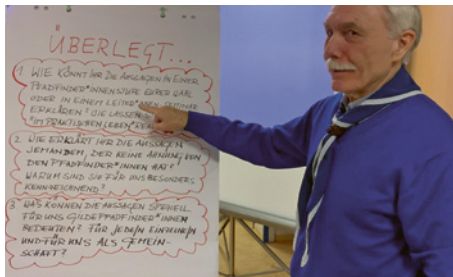 ÜBERLEGT...
1 WIE KÖNNT IHR DIE AUSSAGEN IN EINER
PFADFINDER*INNENSTUFE EURER WAHL
ODER IN EINEM LEITER*INNEN-SEMINAR
ERKLÄREN? WIE LASSEN S
"IM PRAKTISCHEN LEBEN"
2 WIE ERKLÄRT IHR DIE AUSSAGEN
JEMANDEM, DER KEINE AHNUNG VON
DEN PFADFINDER*INNEN HAT?
WARUM SIND SIE FÜR UNS BESONDERS
KENNZEICHNEND?
3 WAS KÖNNEN DIE AUSSAGEN SPEZIELL
FÜR UNS GILDEPFADFINDER*INNEN
BEDEUTEN? FÜR JEDE/N EINZELNE/N
UND FÜR UNS ALS GEMEIN-
SCHAFT?